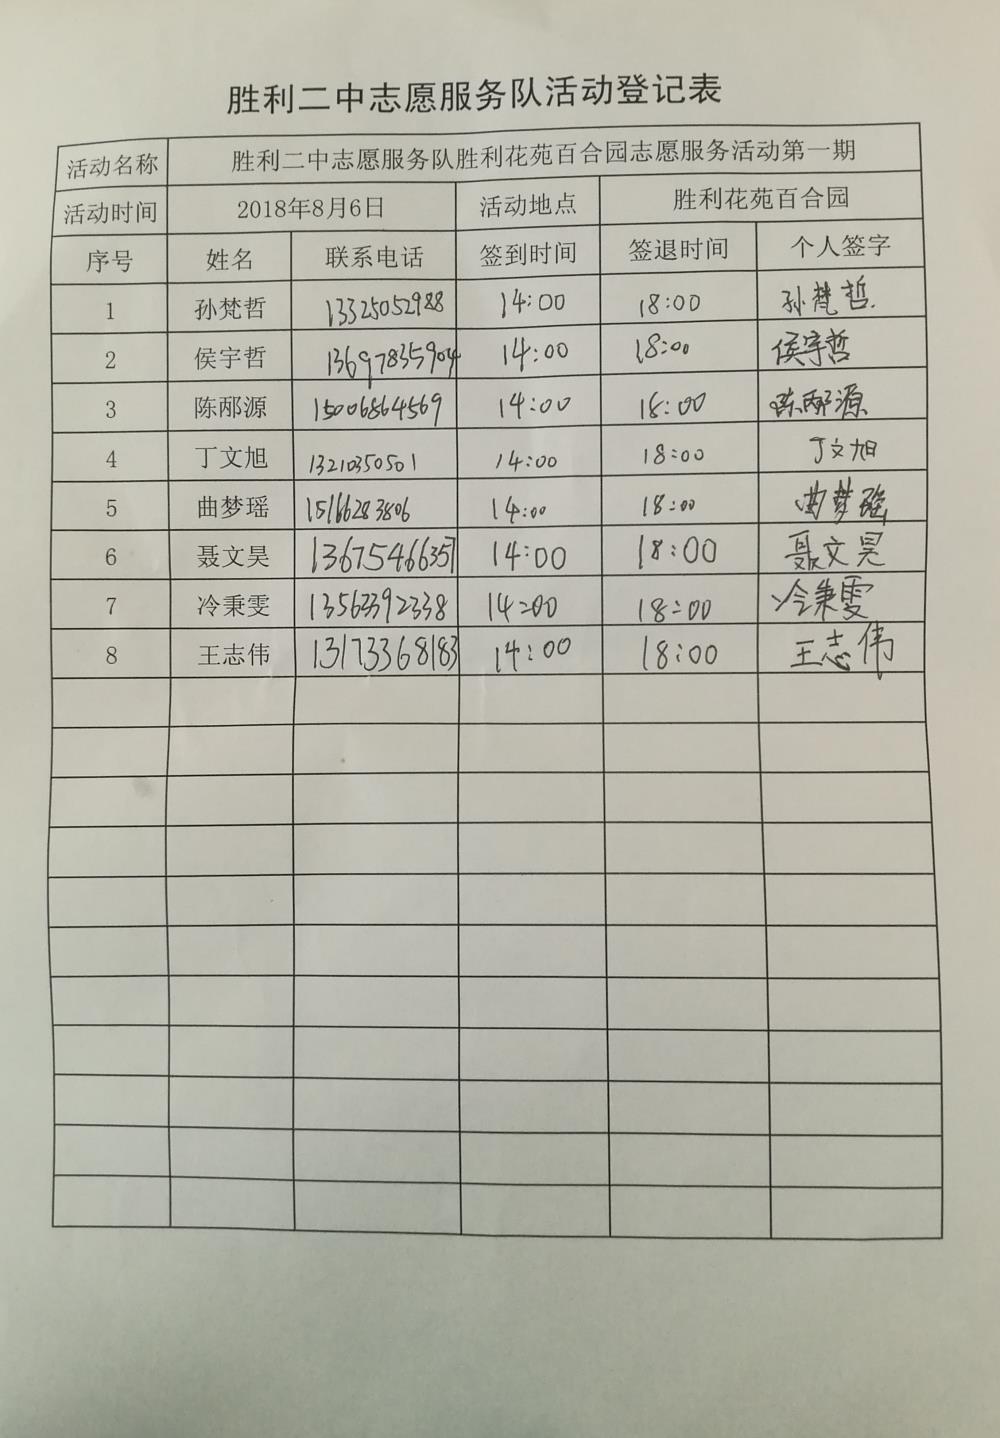 胜利二中志愿服务队活动登记表
活动名称 胜利二中志愿服务队胜利花苑百合园志愿服务活动第一期
活动时间 2018年8月6日 活动地点 胜利花苑百合园
序号 姓名 联系电话 签到时间 签退时间 个人签字
1 孙梵哲 13325052988 14:00 18:00 孙梵哲
2 侯宇哲 13697835904 14:00 18:00 侯宇哲
3 陈邴源 15006864569 14:00 18:00 陈邴源
4 丁文旭 13210350501 14:00 18:00 丁文旭
5 曲梦瑶 15166283806 14:00 18:00 曲梦瑶
6 聂文昊 13675466357 14:00 18:00 聂文昊
7 冷秉雯 13563392338 14:00 18:00 冷秉雯
8 王志伟 13173368183 14:00 18:00 王志伟